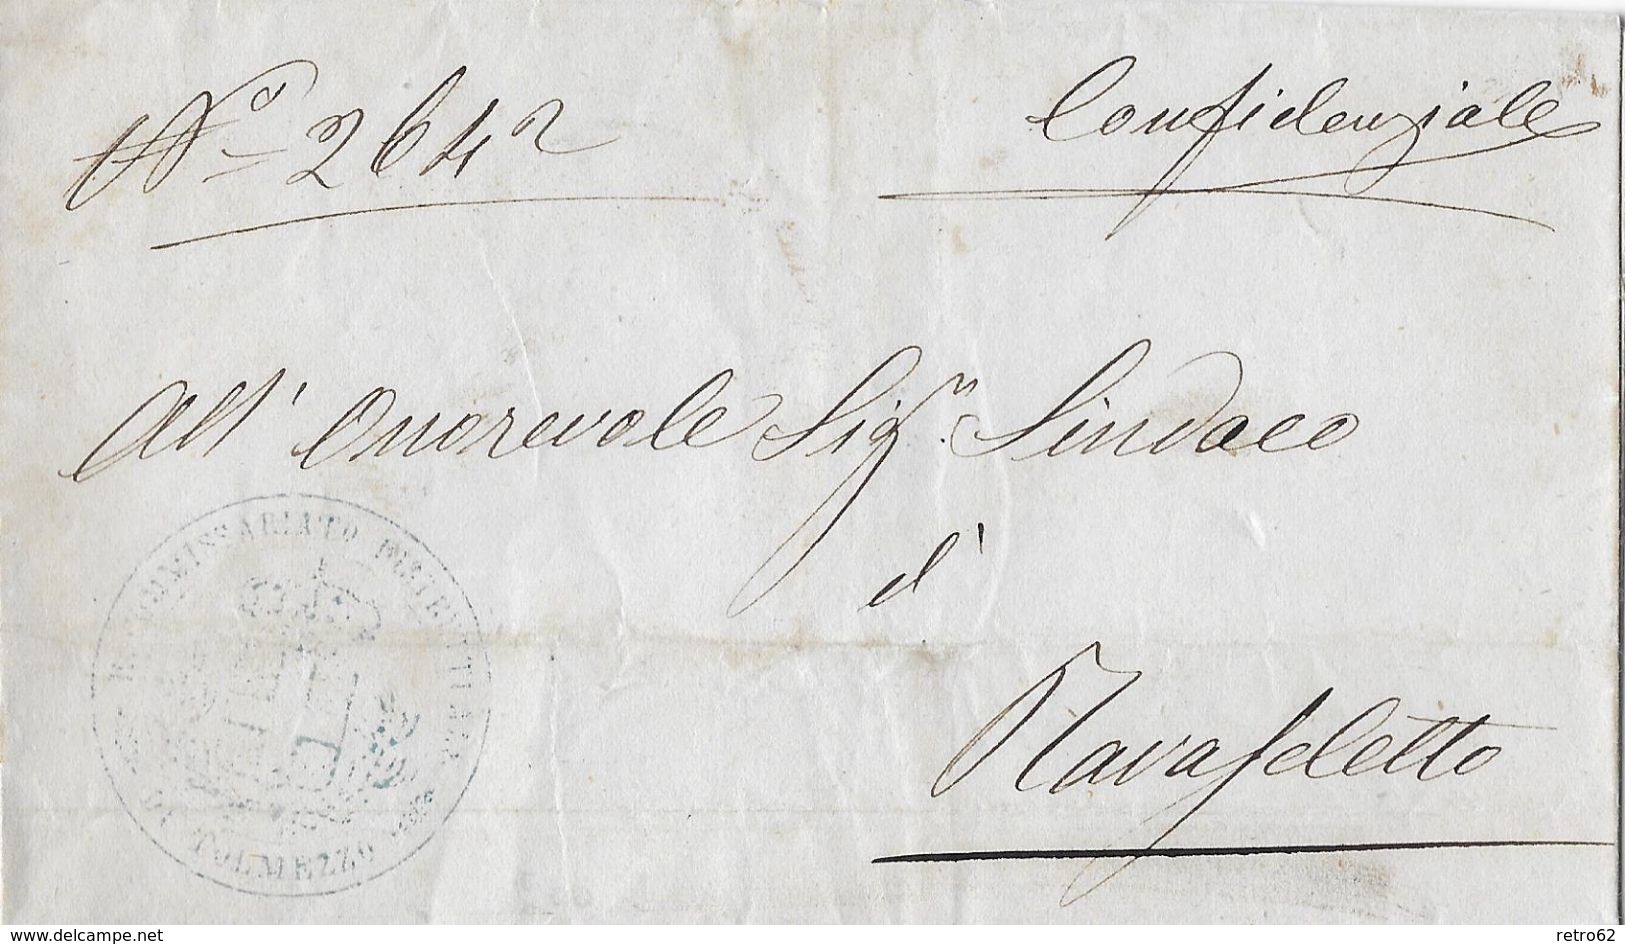 N.º 2642
Confidenziale
All' Onorevole Sigr. Sindaco
d'
Ravascletto
R. COMMISSARIATO DISTRETTUALE
DI TOLMEZZO
www.delcampe.net
retro62